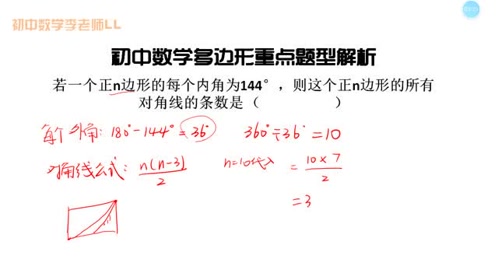 初中数学李老师LL
初中数学多边形重点题型解析
若一个正n边形的每个内角为144°，则这个正n边形的所有
对角线的条数是（ ）
每个外角：180°-144°=36° 360°÷36°=10
对角线公式：n(n-3)/2 n=10代入 =10×7/2
=3